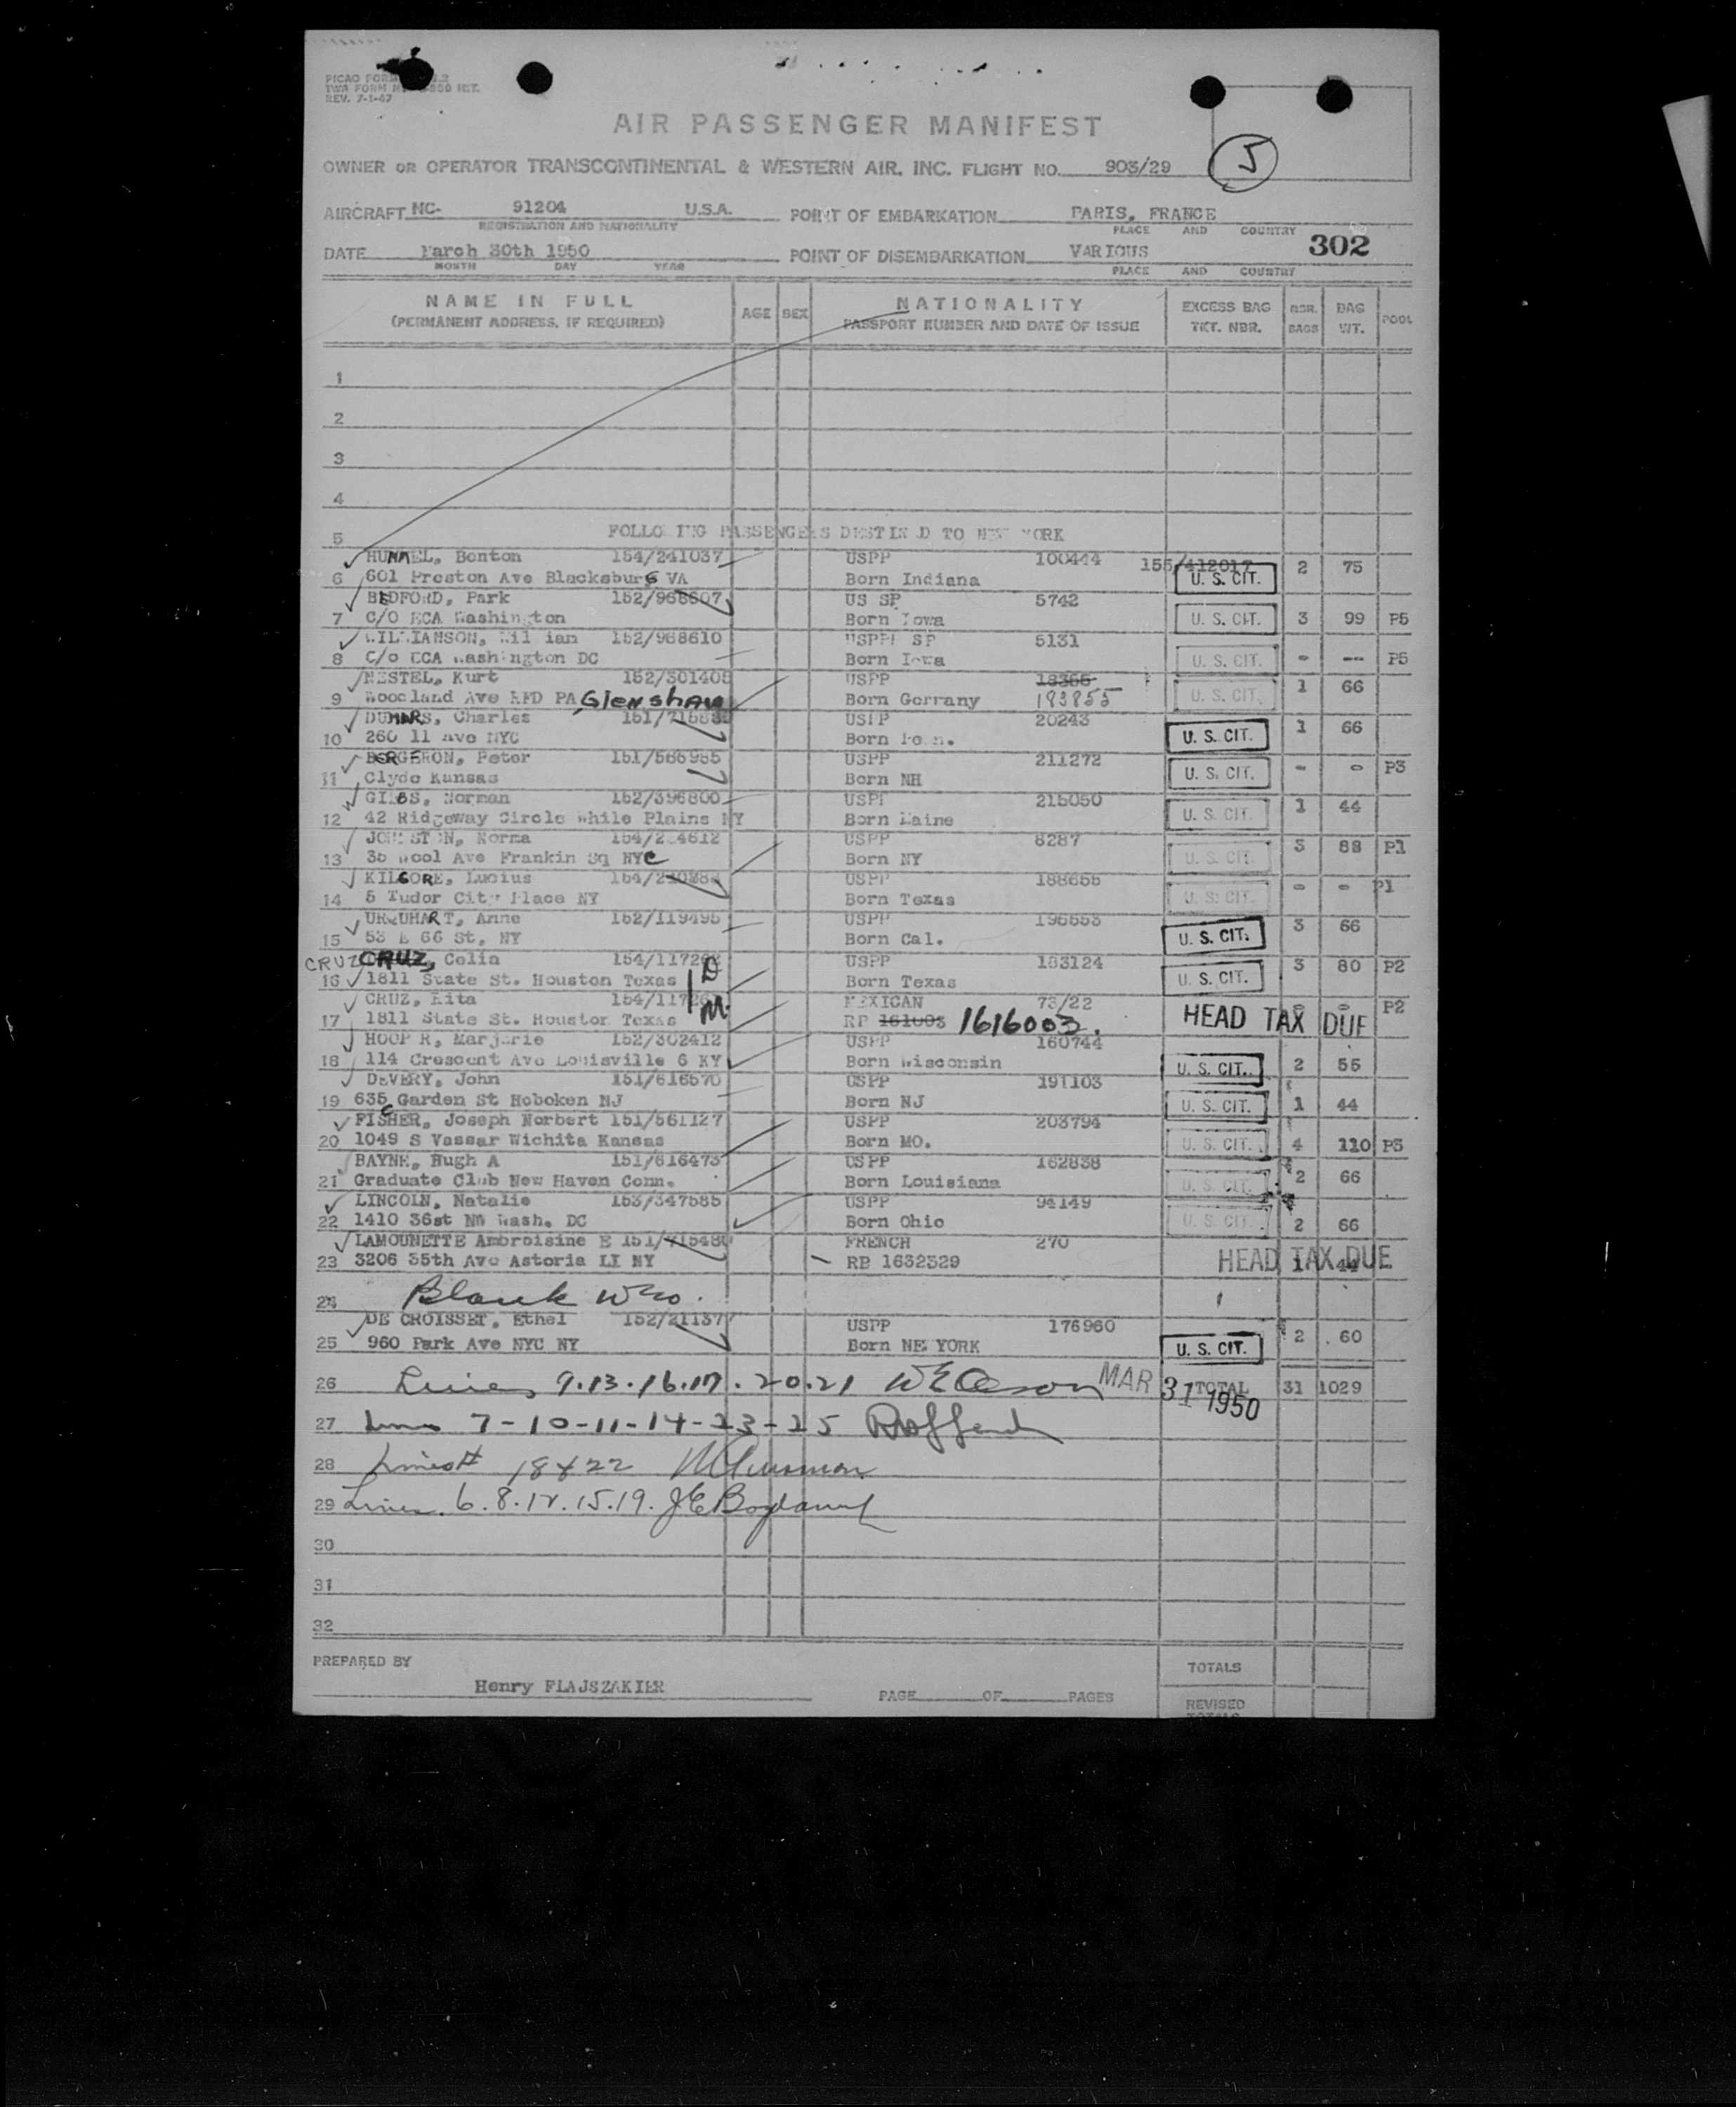 PICAO FORM
TWA FORM
REV. 7-1-47
AIR PASSENGER MANIFEST
OWNER OR OPERATOR TRANSCONTINENTAL & WESTERN AIR. INC. FLIGHT NO. 903/29
5
AIRCRAFT NC- 91204 U.S.A. POINT OF EMBARKATION PARIS, FRANCE
REGISTRATION AND NATIONALITY PLACE AND COUNTRY
302
DATE March 30th 1950 POINT OF DISEMBARKATION VARIOUS
MONTH DAY YEAR PLACE AND COUNTRY
NAME IN FULL AGE SEX NATIONALITY EXCESS BAG NBR. BAG POOL
(PERMANENT ADDRESS, IF REQUIRED) PASSPORT NUMBER AND DATE OF ISSUE TKT. NBR. BAGS WT.
1
2
3
4
FOLLO ING PASSENGERS DESTIN D TO NEW YORK
5
HUMMEL, Benton 154/241037 USPP 100444 155/412017
6 601 Preston Ave Blacksburg VA Born Indiana U. S. CIT. 2 75
BEDFORD, Park 152/968607 US SP 5742
7 C/O ECA Washington Born Iowa U. S. CIT. 3 99 P5
WILLIANSON, Wil ian 152/968610 USPP SP 5131
8 C/o ECA Washington DC Born Iowa U. S. CIT. - -- P5
NESTEL, Kurt 152/301408 USPP 18366 193855
9 Woodland Ave RFD PA Glenshaw Born Gerrany U. S. CIT. 1 66
DUMARS, Charles USPP 20243
10 260 11 Ave NYC Born U. S. CIT. 1 66
BERGERON, Peter 151/566985 USPP 211272
11 Clyde Kansas Born NH U. S. CIT. - - P3
GIBBS, Norman 152/396800 USPP 215050
12 42 Ridgeway Circle While Plains NY Born Maine U. S. CIT. 1 44
JOHNSTON, Norma USPP 8287
13 35 Wool Ave Frankin Sq NYC Born NY U. S. CIT. 3 88 P1
KILGORE, Lucius USPP 188655
14 5 Tudor City Place NY Born Texas U. S. CIT. - - P1
URQUHART, Anne 152/119495 USPP 196553
15 53 E 66 St, NY Born Cal. U. S. CIT. 3 66
CRUZ CRUZ, Celia USPP 183124
16 1811 State St. Houston Texas D Born Texas U. S. CIT. 3 80 P2
CRUZ, Rita M. MEXICAN 73/22
17 1811 State St. Houstor Texas RP 161003 1616003. HEAD TAX DUE - - P2
HOOP R, Marjorie 152/302412 USPP 160744
18 114 Crescent Ave Louisville 6 KY Born Wisconsin U. S. CIT. 2 55
DEVERY, John 151/616570 USPP 191103
19 635 Garden St Hoboken NJ Born NJ U. S. CIT. 1 44
FISCHER, Joseph Norbert 151/561127 USPP 203794
20 1049 S Vassar Wichita Kansas Born MO. U. S. CIT. 4 110 P3
BAYNE, Hugh A 151/616473 USPP 162838
21 Graduate Club New Haven Conn. Born Louisiana U. S. CIT. 2 66
LINCOLN, Natalie 153/347585 USPP 94149
22 1410 36st NW Wash. DC Born Ohio U. S. CIT. 2 66
LAMOUNETTE Ambroisine E FRENCH 270
23 3206 35th Ave Astoria LI NY RP 1632329 HEAD TAX DUE 1 44
24 Blank
DE CROISSET, Ethel 152/21137 USPP 176960
25 960 Park Ave NYC NY Born NEW YORK U. S. CIT. 2 60
26 Lines 9.13.16.17.20.21 MAR 31 1950 TOTAL 31 1029
27 Lines 7-10-11-14-23-25
28 Lines # 18 & 22
29 Lines. 6.8.12.15.19.
30
31
32
PREPARED BY TOTALS
Henry FLAJSZAKIER PAGE OF PAGES
REVISED
TOTALS